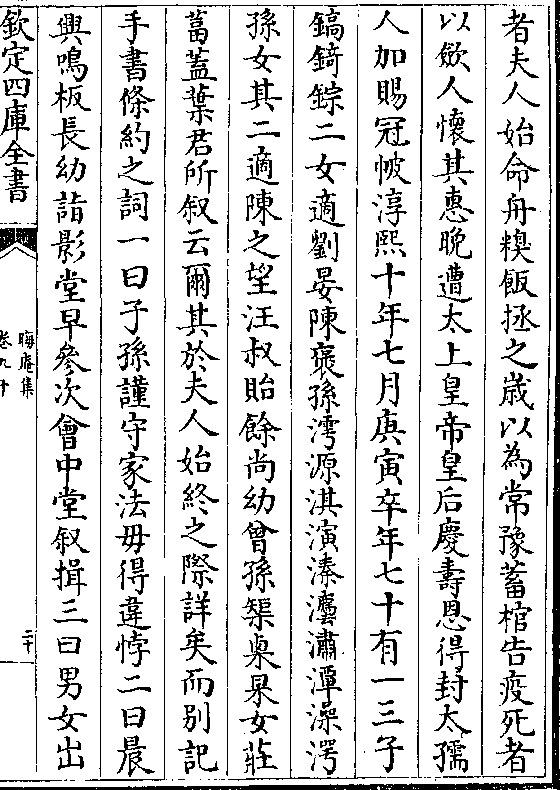 者夫人始命舟糗飯拯之歳以為常豫蓄棺告疫死者
以歛人懷其惠晚遭太上皇帝皇后慶壽恩得封太孺
人加賜冠帔淳熙十年七月庚寅卒年七十有一三子
鎬錡錝二女適劉晏陳襃孫澚源淇演溱瀊潚潭澡湂
孫女其二適陳之望汪叔貽餘尚幼曾孫榘臬杲女莊
葍蓋葉君所叙云爾其於夫人始終之際詳矣而别記
手書條約之詞一曰子孫謹守家法毋得違悖二曰晨
興鳴板長幼詣影堂早參次會中堂叙揖三曰男女出
欽定四庫全書
晦庵集
卷九十
二十